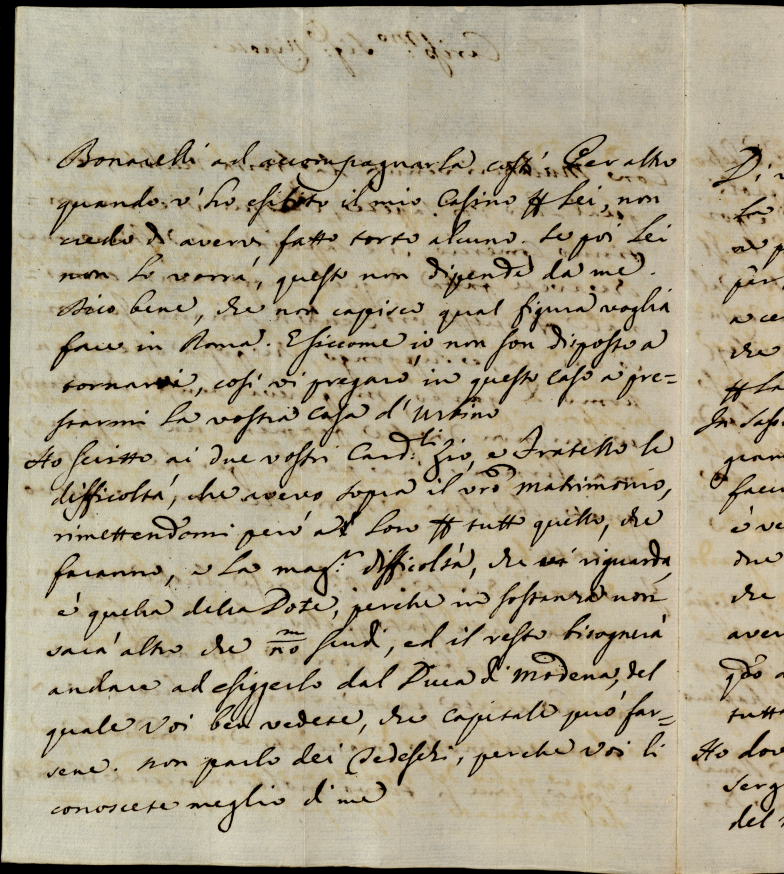 Bonarelli ad accompagnarla costì. Per altro
quando v'ho esibito il mio Casino per Lei, non
credo di avervi fatto torto alcuno. Se poi Lei
non lo vorrà, questo non dipende da me.
Dico bene, che non capisco qual figura voglia
fare in Roma. E siccome io non son disposto a
tornarvi, così vi pregarò in questo caso a pre=
starmi la vostra Casa d'Urbino
Ho scritto ai due vostri Card:li Zio, e Fratello le
difficoltà, che avevo sopra il vro matrimonio,
rimettendomi però a Loro per tutto quello, che
faranno, e la mag.r difficoltà, che vi riguarda,
è quella della Dote, perche in sostanza non
sarà altro che scudi, ed il resto bisognerà
andare ad esiggerlo dal Duca di Modena, del
quale voi ben vedete, che capitale può far=
sene. Non parlo dei Tedeschi, perche voi li
conoscete meglio di me
Di
In
Ho dov
del
che
due
che
è ve
tutt